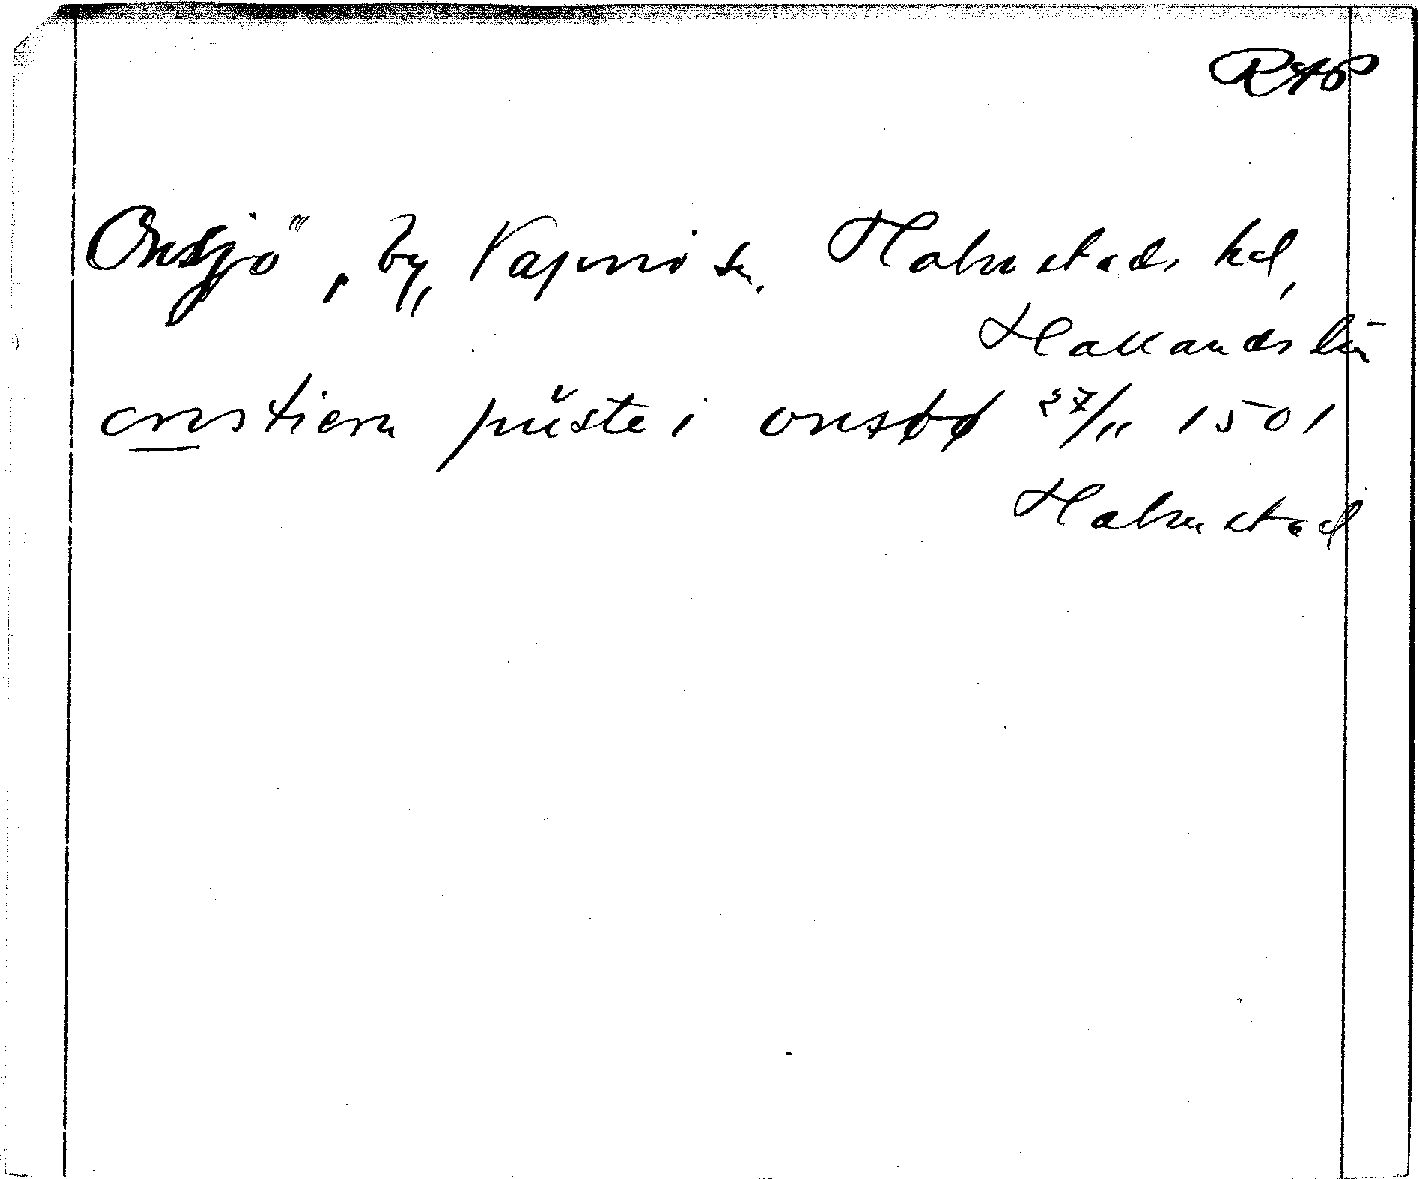 RAP
Onsjö, by, Vapnö sn. Halmstads hd,
Hallands län
cristiern püste i onsøø 27/11 1501
Halmstad